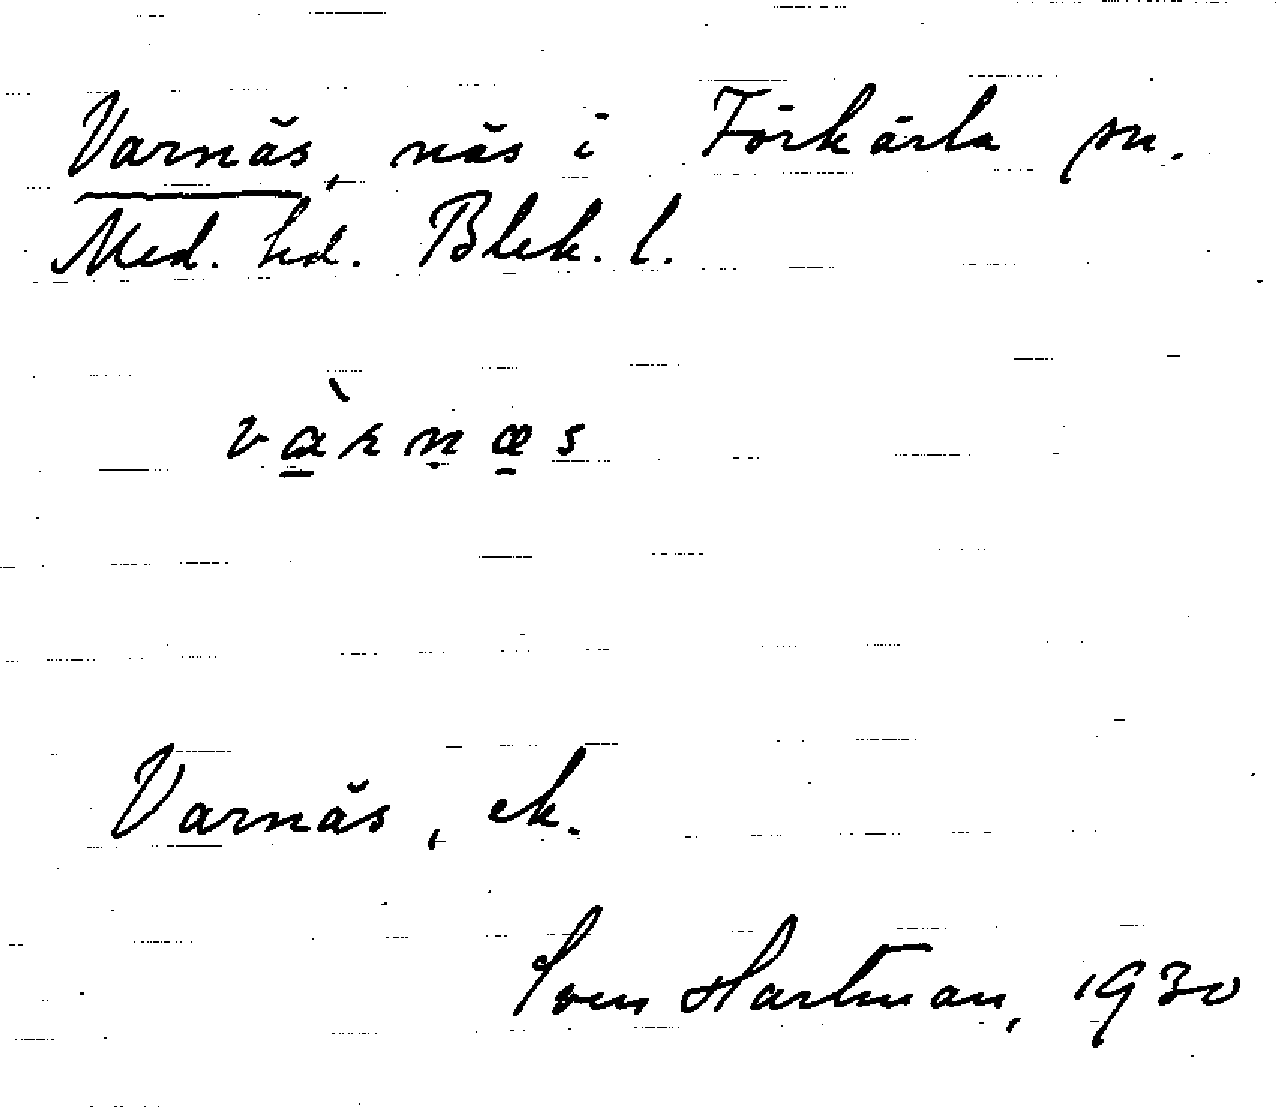 Varnäs, näs i Förkärla sn.
Med. hd. Blek. l.
và̱rṇæ̱s
Varnäs, ek.
Sven Hartman, 1930